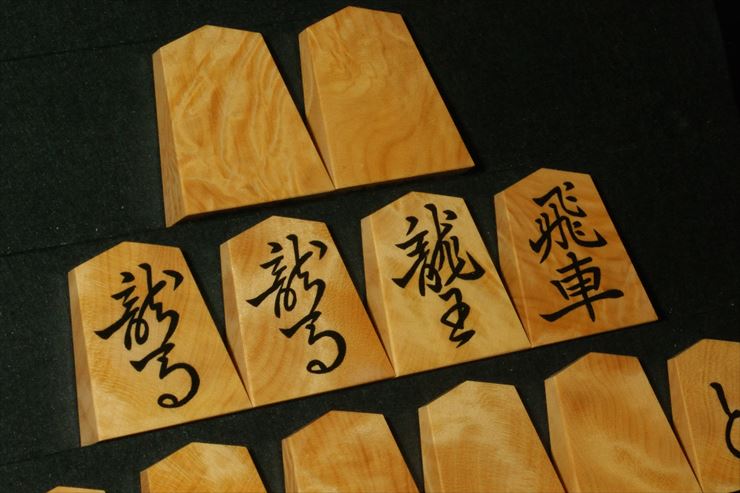 龍馬
龍馬
龍王
飛車
と